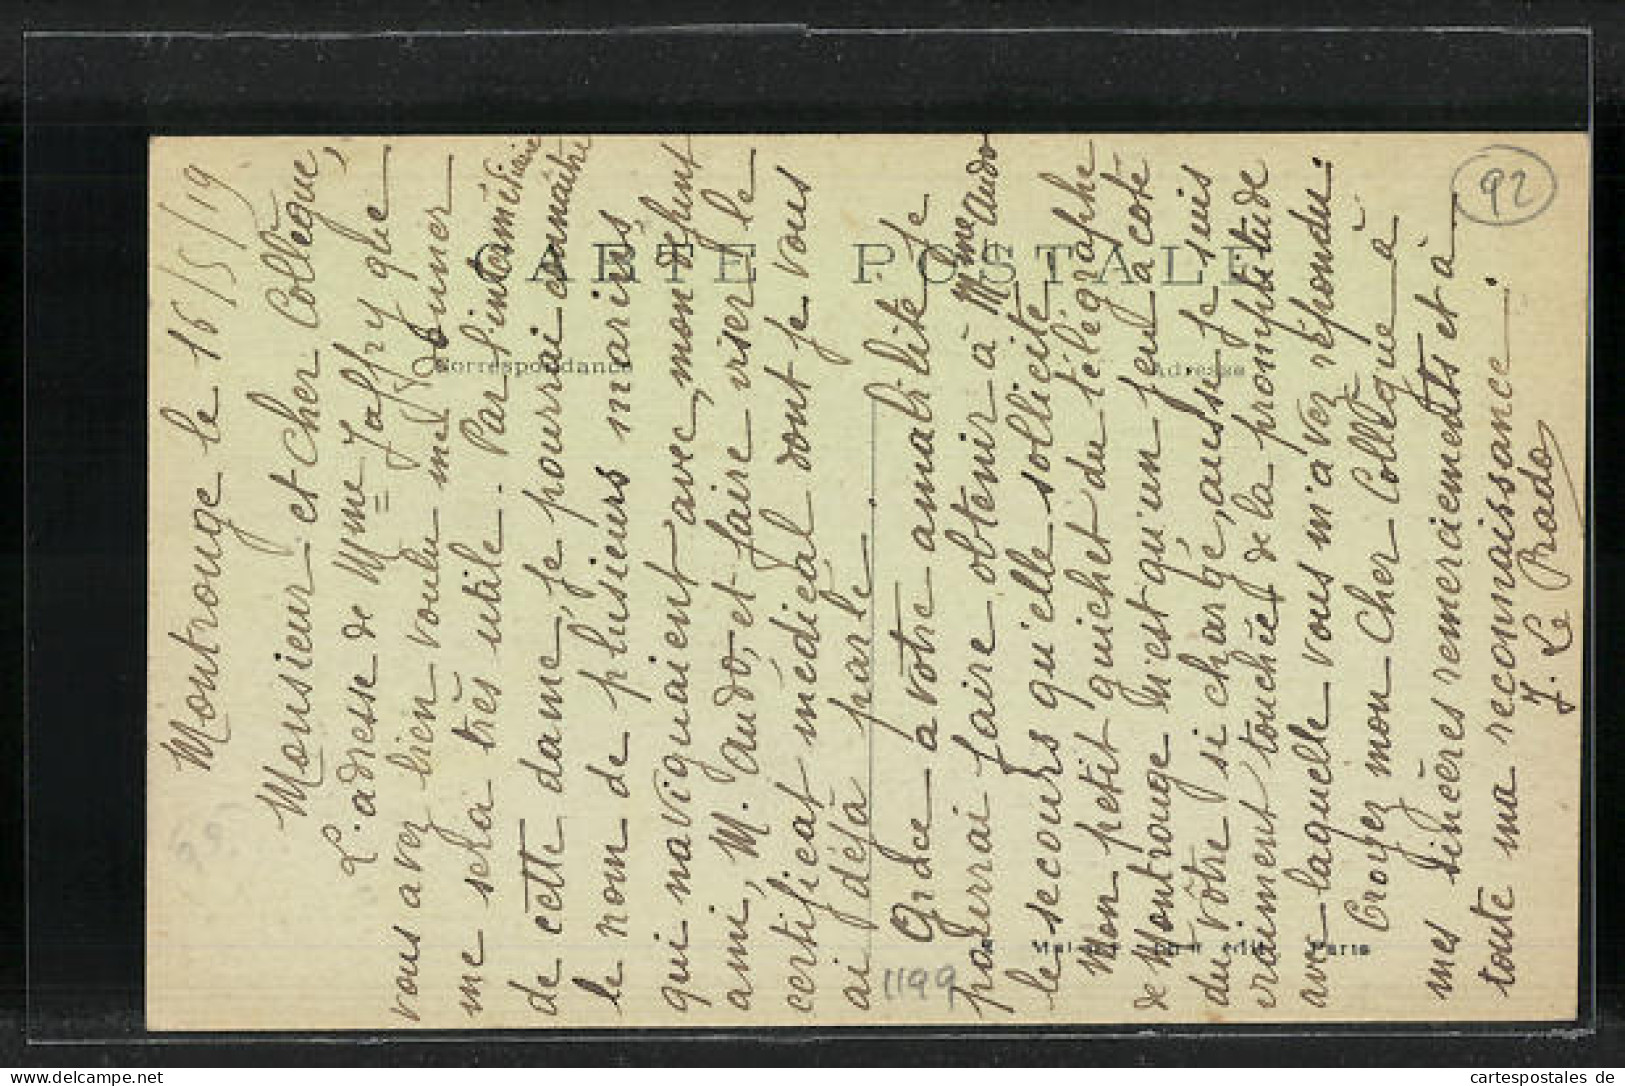 Montrouge le 16/5/19
Monsieur et Cher Collègue,
L'adresse de Mme Jaffry que
vous avez bien voulu me donner
me sera très utile. Par l'intermédiaire
de cette dame, je pourrai connaître
le nom de plusieurs marins
qui naviguaient avec, mon défunt
ami, M. Audo, et faire viser le
certificat médical dont je vous
ai déjà parlé.
Grâce à votre amabilité je
pourrai faire obtenir à Mme Audo
le secours qu'elle sollicite.
Mon petit guichet du télégraphe
de Montrouge n'est qu'un jeu à côté
du vôtre si chargé, aussi je suis
vraiment touché de la promptitude
avec laquelle vous m'avez répondu.
Croyez mon Cher Collègue à
mes sincères remerciements et à
toute ma reconnaissance.
J. Le Prado
CARTE POSTALE
Correspondance
Adresse
Paris
92
1199
http://www.ansichtskartenversand.com/
cartespostales de